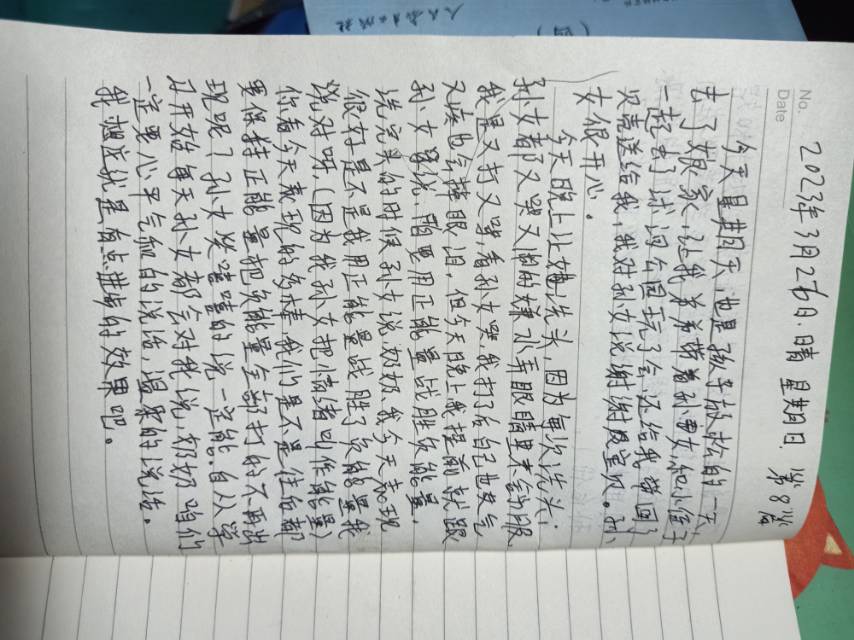 人民
(四)
No.
Date
2023年3月26日.晴 星期日. 第8篇
今天星期天,也是孩子放松的一天,
去了娘家,让我弟弟带着孙女和小侄子
一起去了公园玩了会还给我带回了
送给我,我对孙女说谢谢宝贝。孙
女很开心。
今天晚上让她洗头,因为每次洗头,
孙女都又哭又闹的嫌水弄眼睛里衣服
我是又打又骂,看孙女哭,我打了自己也生气
又疼也会掉眼泪,但今天晚上我提前就跟
孙女说,用正能量战胜负能量,
洗完头的时候孙女说,奶奶我今天表现
很好是不是我用正能量战胜了负能量我
说对呀,(因为我孙女把情绪叫作能量)
你看今天表现的多棒,我们是不是往后都
要保持正能量把负能量全部打的不再出
现呢?孙女笑嘻嘻的说一定能.自从学
习开始每天孙女都会对我说,奶奶咱们
一定要心平气和的说话,温柔的说话。
我想这就是有点进步的效果吧。